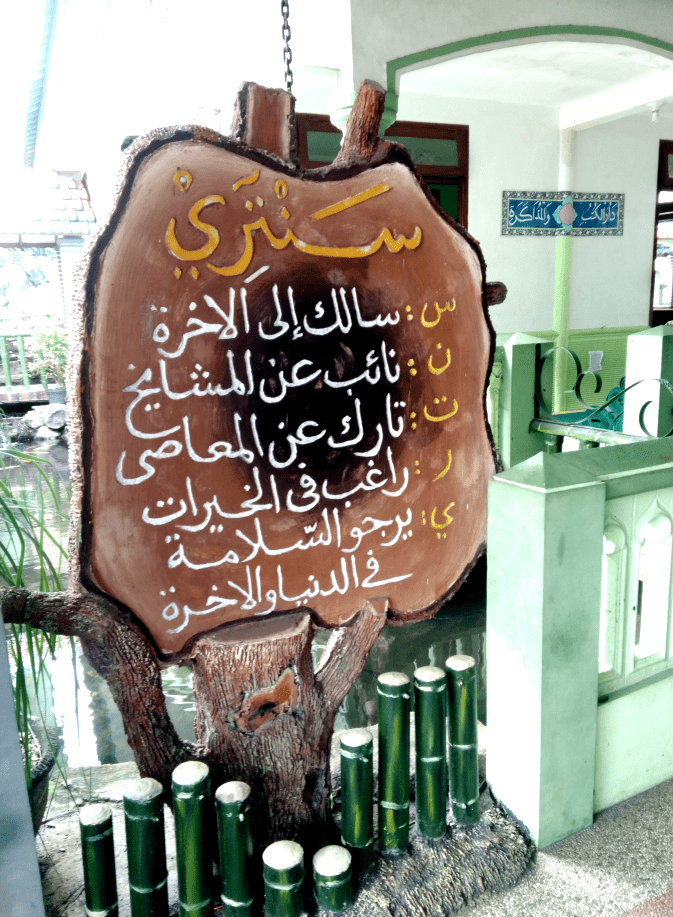 سَنْتَرِيْ
س : سالك إلى الآخرة
ن : نائب عن المشايخ
ت : تارك عن المعاصى
ر : راغب فى الخيرات
ي : يرجو السّلامة
فى الدنيا والاخرة
دار الكتب والمذاكرة